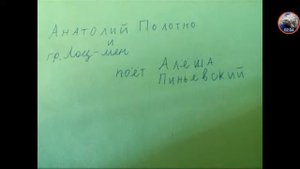 Анатолий Полотно
и
гр. Лоц-мен
поёт Алеша
Пиньевский